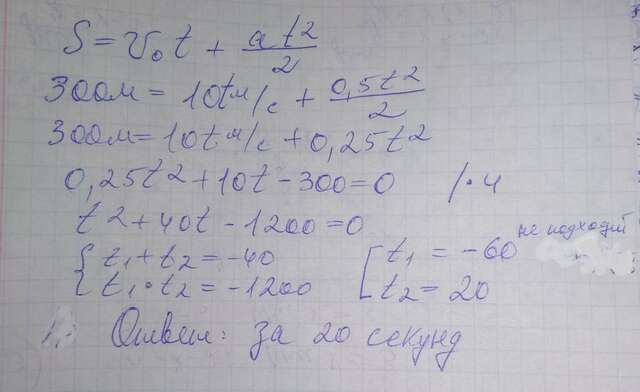 S = v₀t + at²/2
300м = 10t м/с + 0,5t²/2
300м = 10t м/с + 0,25t²
0,25t² + 10t - 300 = 0 /·4
t² + 40t - 1200 = 0
{ t₁ + t₂ = -40 [ t₁ = -60 не подходит
{ t₁ · t₂ = -1200 [ t₂ = 20
Ответ: за 20 секунд